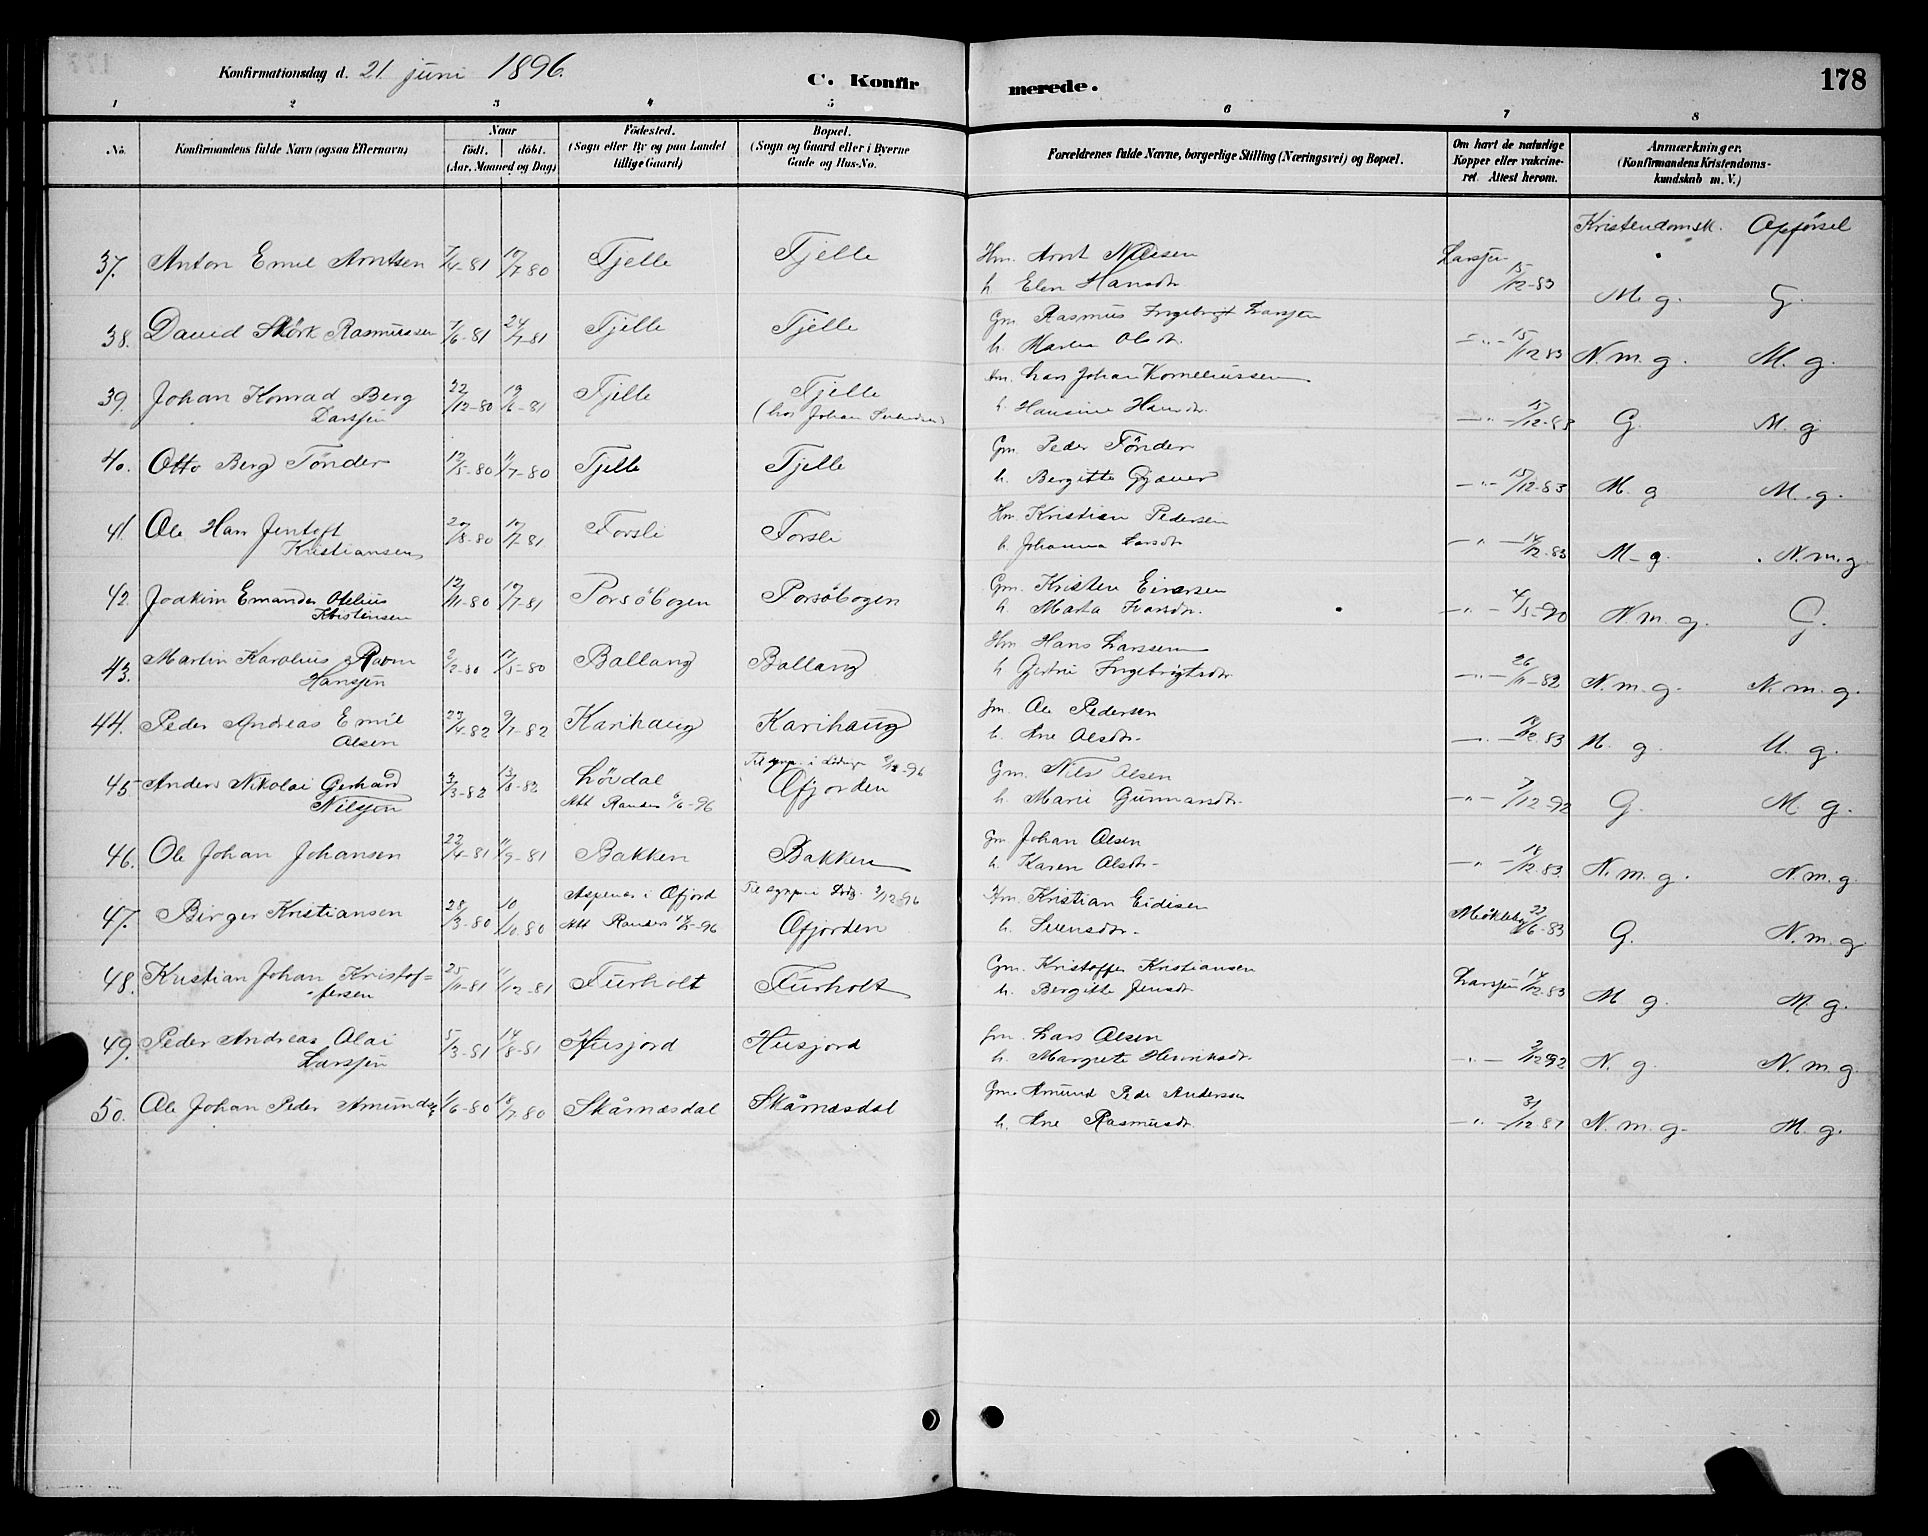 Konfirmationsdag d. 21. juni 1896.
C. Konfirmerede.
178
1 2 3 4 5 6 7 8
No.
Konfirmandens fulde Navn (ogsaa Efternavn)
Naar
födt. döbt.
(Aar, Maaned og Dag)
Födested.
(Sogn eller By og paa Landet
tillige Gaard)
Bopæl.
(Sogn og Gaard eller i Byerne
Gade og Hus-No.
Forældrenes fulde Navne, borgerlige Stilling (Næringsvei) og Bopæl.
Om havt de naturlige
Kopper eller vakcineret. Attest herom.
Anmærkninger.
(Konfirmandens Kristendomskundskab m. V.)
Kristendomsk. Opførsel
37. Anton Emil Arntsen 7/4-81 /7-80 Tjelle Tjelle Hm. Arnt Nilsen
h. Elen Hansdtr Larsen 15/12-83 M g. G.
38. David Størk Rasmussen 7/6-81 24/7-81 Tjelle Tjelle Gm. Rasmus Ingebrigt Larsen
h. Olsdtr. — " — 15/12 83 N. m. g. M. g.
39. Johan Konrad Berg
Larsen 22/12-80 19/6-81 Tjelle Tjelle
(hos Johan Lars Johan Korneliussen
h. Hansine Hansdtr. — " — 15/12-83 G. M. g
40. Otto Berg Tønder 12/5-80 11/7-80 Tjelle Tjelle Gm. Peder Tønder
h. Bergitte — " — 15/12-83 M. g M. g.
41. Ole Hans Jentoft
Kristiansen /8-80 /7-81 Forsli Forsli Hm. Kristian Pedersen
h. Johanna Larsdtr — " — 14/12-83 M-g. N. m. g.
42. Joakim Emander Otelius
Kristensen 12/11-80 /7-81 Porsöbogen Porsöbogen Gm. Kristen Einarsen
h. Marta Ivarsdtr. — " — 4/5-90 N. m. g. G.
43. Martin Karolius Ravn
Hansen 2/2-80 /5-80 Ballang Ballang Hm Hans Larssen
h Gjertrud Ingebrigtsdtr — " — 26/11-82 N. m. g. N. m. g.
44. Peder Andreas Emil
Olsen 23/4-82 9/7-82 Karihaug Karihaug Ole Pedersen
h. Ane Olsdtr. — " — /12 83 M. g. M. g.
45 Anders Nikolai Gerhard
Nilsen /3-82 13/8-82 Lövdal
Att Randers 6/6-96 Til i 2/12-96
Ofjorden Gm. Nils Olsen
h. Marie Gunnarsdtr. — " — 7/12-92 G. M. g.
46. Ole Johan Johansen 22/4-81 11/9-81 Bakken Bakken Gm Johan Olsen
h. Karen Olsdtr — " — 18/12.83 N. m. g. N. m. g.
47. Birger Kristiansen 28/3-80 10/10.80 i Ofjord
Att Randers /5-96 Til 2/12-96
Ofjorden Hm. Kristian Eidisen
h. Sivensdtr. 22/6-83 G. N. m. g
48. Kristian Johan Kristoffersen 25/11-81 11/12-81 Furholt Furholt Gm. Kristoffer Kristiansen
h. Bergitte Jensdtr Larsen 14/12-83 M g. M. g.
49. Peder Andreas Olai
Larsen 5/3-81 14/8-81 Husjord Husjord Lars Olsen
h. Margrete Henriksdtr. — " — 2/12 92 N. g. N. m. g
50. Ole Johan Peder Amunds. /6-80 18/7 80 Skårnæsdal Skårnæsdal Gm. Amund Peder Andersen
h. Ane Rasmusdtr. — " — 31/12.87 N. m. g- M. g.